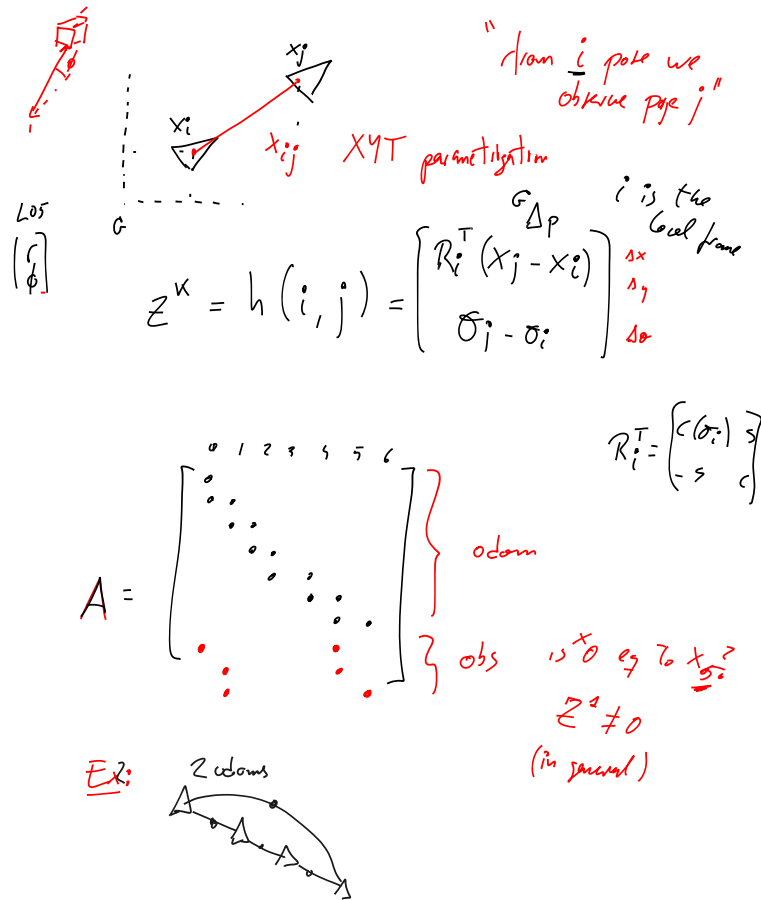 "from i pose we
observe pose j"
ϕ
x_j
x_i
x_ij
XYT parametrization
G
L05
[r
ϕ]
^GΔp
i is the
local frame
z^k = h(i, j) = [R_i^T (x_j - x_i)
θ_j - θ_i]
Δx
Δy
Δθ
R_i^T = [c(θ_i) s
-s c]
0 1 2 3 4 5 6
A =
odom
obs
is x_0 eq to x_5?
z^1 ≠ 0
(in general)
Ex2:
2 odoms